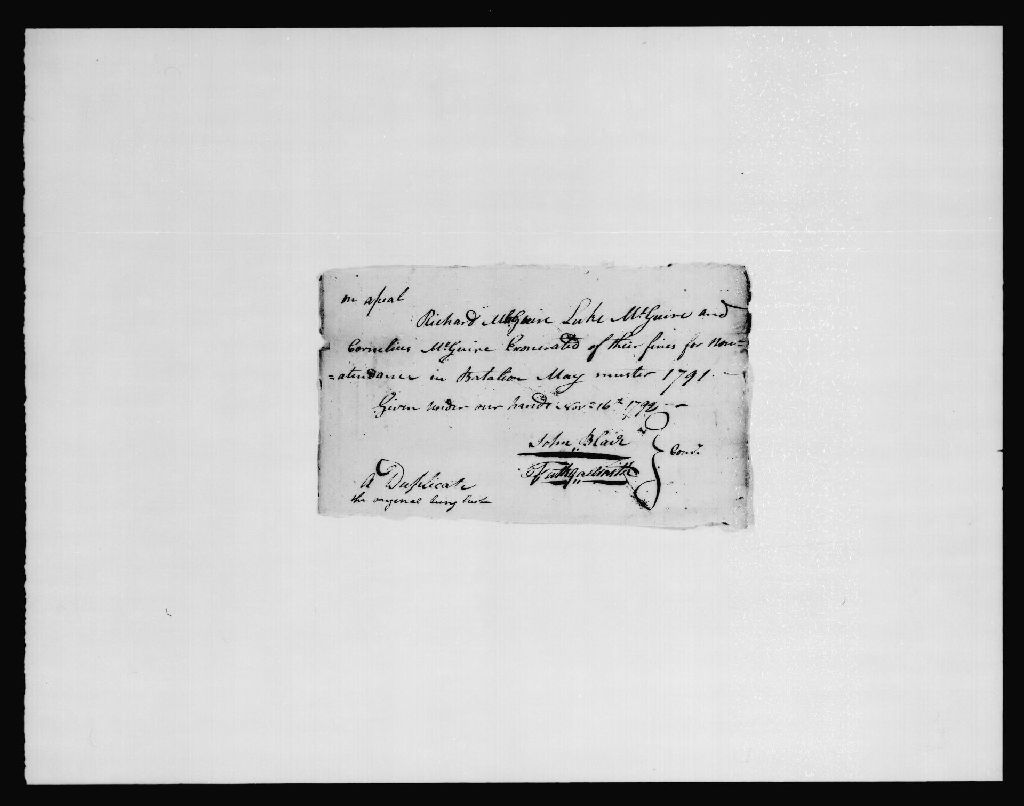 on apeal
Richard McGuire Luke McGuire and
Cornelius McGuire Exonerated of their fines for Non=
=atendance in Batalion May muster 1791.
Given under our hands Novr 16th 1792
John Blair
Comrs
A Duplicate
the original being lost